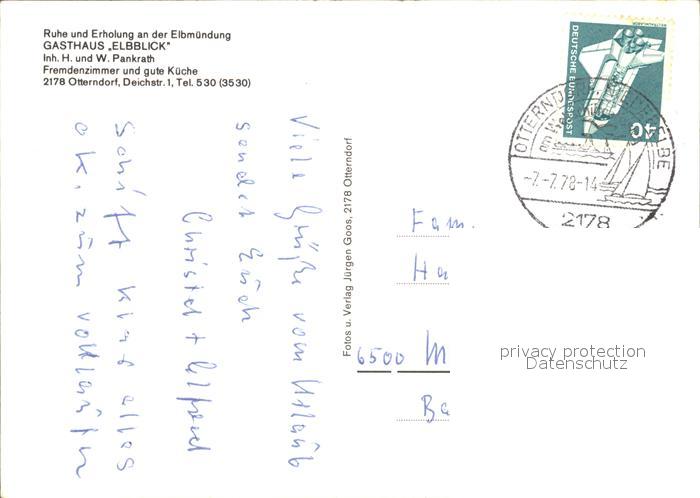 Ruhe und Erholung an der Elbmündung
GASTHAUS „ELBBLICK"
Inh. H. und W. Pankrath
Fremdenzimmer und gute Küche
2178 Otterndorf, Deichstr. 1, Tel. 530 (3530)
Viele Grüße vom Urlaub
sendet Euch
Christel + Alfred
Schiff kind alles
o.k. zum
Fotos u. Verlag Jürgen Goos, 2178 Otterndorf
Fam.
Ha
6500 M
Ba
DEUTSCHE BUNDESPOST
40
OTTERNDORF NIEDERELBE
-7.-7.78-14
2178
privacy protection
Datenschutz